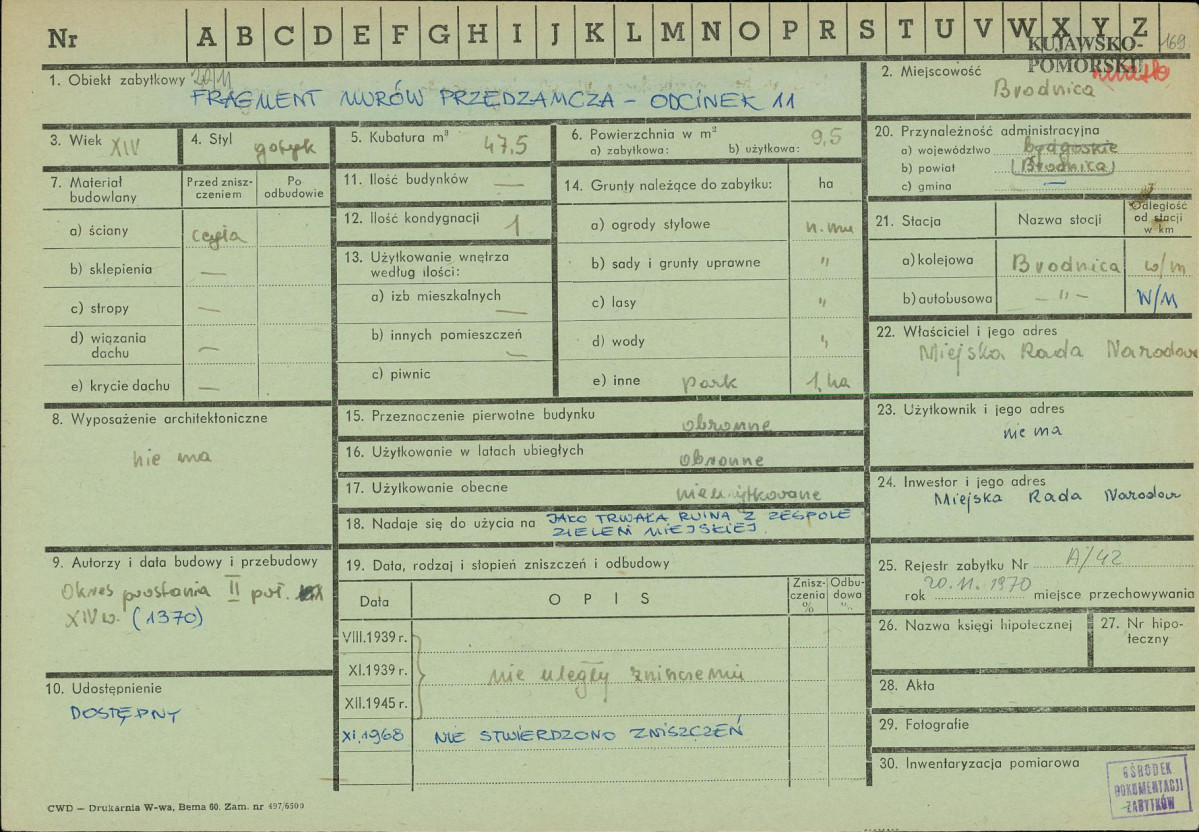 Nr A B C D E F G H I J K L M N O P R S T U V W X Y Z
169
KUJAWSKO-
POMORSKI
miasto
1. Obiekt zabytkowy
FRAGMENT MURÓW PRZEDZAMCZA – ODCINEK 11
2. Miejscowość
Brodnica
3. Wiek XIV
4. Styl gotyk
5. Kubatura m³ 47,5
6. Powierzchnia w m² 9,5
a) zabytkowa: b) użytkowa:
20. Przynależność administracyjna
a) województwo bydgoskie
b) powiat (Brodnica)
c) gmina —
7. Materiał budowlany
Przed znisz-
czeniem
Po
odbudowie
a) ściany cegła
b) sklepienia —
c) stropy —
d) wiązania
dachu —
e) krycie dachu —
11. Ilość budynków —
12. Ilość kondygnacji 1
13. Użytkowanie wnętrza
według ilości:
a) izb mieszkalnych —
b) innych pomieszczeń —
c) piwnic
14. Grunty należące do zabytku: ha
a) ogrody stylowe n. ma
b) sady i grunty uprawne "
c) lasy "
d) wody "
e) inne park 1. ha
21. Stacja
Nazwa stacji
Odległość
od stacji
w km
a) kolejowa Brodnica w/m
b) autobusowa — " — W/M
22. Właściciel i jego adres
Miejska Rada Narodow
8. Wyposażenie architektoniczne
nie ma
15. Przeznoczenie pierwotne budynku obronne
16. Użytkowanie w latach ubiegłych obronne
17. Użytkowanie obecne nieużytkowane
18. Nadaje się do użycia na JAKO TRWAŁA RUINA Z ZESPOLE
ZIELENI MIEJSKIEJ.
23. Użytkownik i jego adres
nie ma
24. Inwestor i jego adres
Miejska Rada Narodow
9. Autorzy i data budowy i przebudowy
Okres powstania II poł.
XIV w. (1370)
19. Data, rodzaj i stopień zniszczeń i odbudowy
Data
O P I S
Znisz-
czenia
%
Odbu-
dowa
%
VIII.1939 r.
XI.1939 r. nie uległy zniszczeniu
XII.1945 r.
XI.1968 NIE STWIERDZONO ZNISZCZEŃ
25. Rejestr zabytku Nr A/42
rok 20.11.1970 miejsce przechowywania
26. Nazwa księgi hipotecznej
27. Nr hipo-
teczny
10. Udostępnienie
DOSTĘPNY
28. Akta
29. Fotografie
30. Inwentaryzacja pomiarowa
OŚRODEK
DOKUMENTACJI
ZABYTKÓW
CWD — Drukarnia W-wa, Bema 60. Zam. nr 497/6500